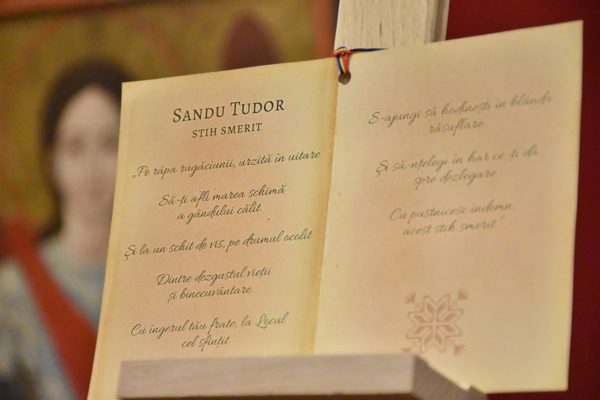 SANDU TUDOR
STIH SMERIT
„Pe râpa rugăciunii, urzită în uitare
Să-ți afli marea schimă
a gândului călit.
Și la un schit de vis, pe drumul ocolit
Dintre dezgustul vieții
și binecuvântare
Cu îngerul tău frate, la Locul
cel sfințit
S-ajungi să hodinești în blânda
răsuflare
Și să-nțelegi în har ce-ți dă
spre dezlegare
Cu pustnicesc îndemn,
acest stih smerit.”